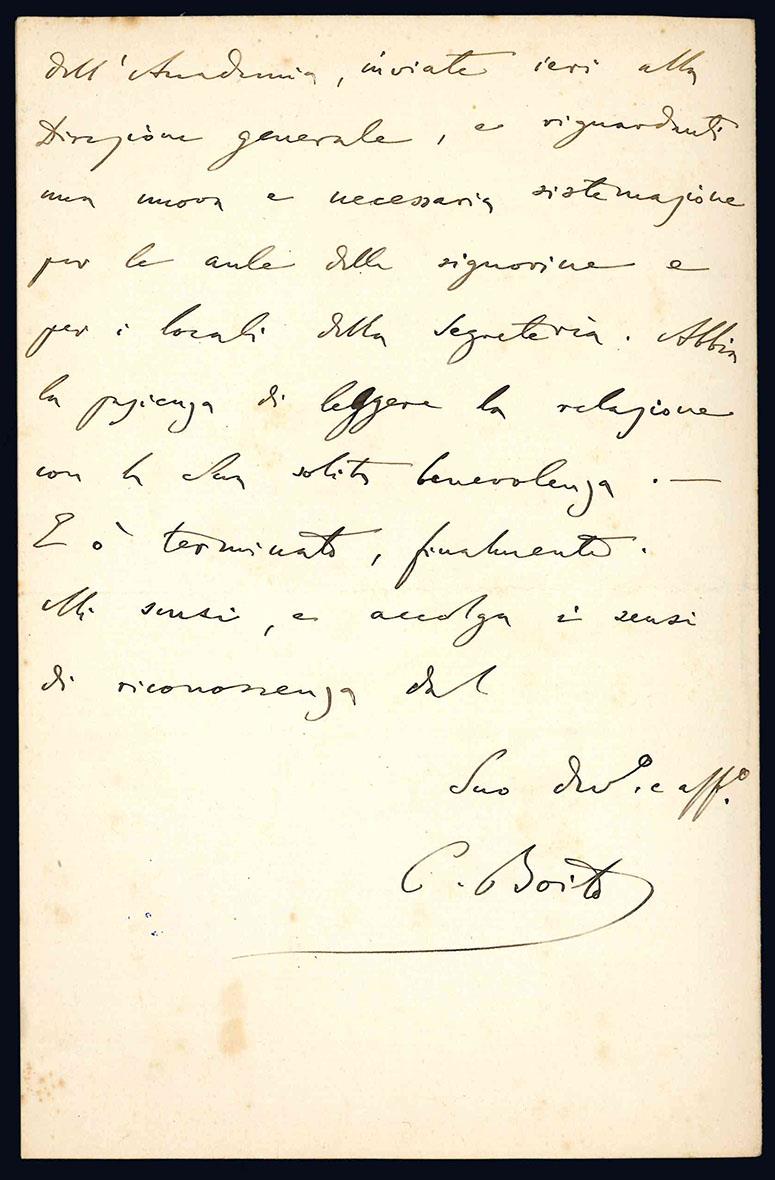 dell'Accademia, inviate ieri alla
Direzione generale, e riguardanti
una nuova e necessaria sistemazione
per le aule delle signorine e
per i locali della Segreteria. Abbia
la pazienza di leggere la relazione
con la Sua solita benevolenza. —
E ò terminato, finalmente.
Mi scusi, e accolga i sensi
di riconoscenza dal
Suo dev.o e aff.o
C. Boito